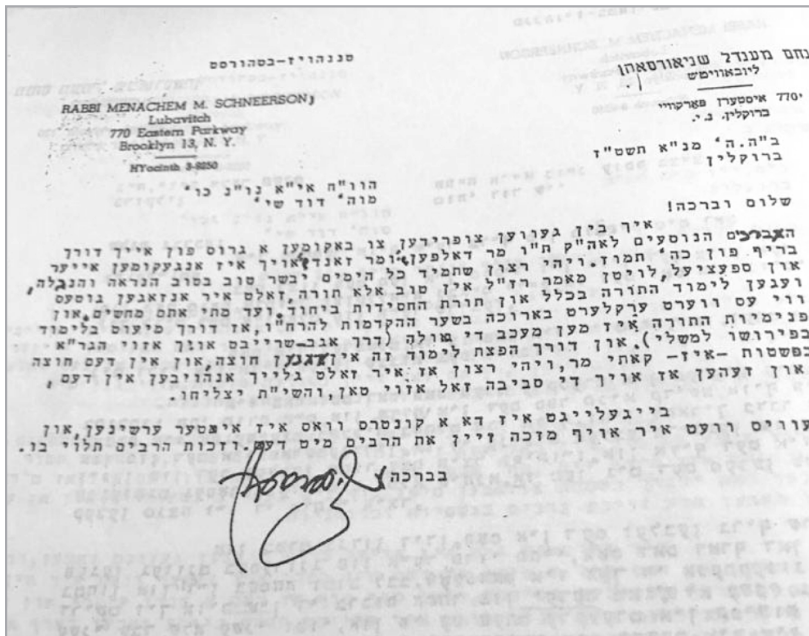 סגנהויז-בסהורסט
נחם מענדל שניאורסאהן
ליובאוויטש
770 איסטערן פארקוויי
ברוקלין, נ.י.
RABBI MENACHEM M. SCHNEERSON
Lubavitch
770 Eastern Parkway
Brooklyn 13, N. Y.
HYacinth 3-9250
ב"ה, ה' מנ"א תשט"ז
ברוקלין
הוו"ח אי"א נו"נ כו'
מוה' דוד שי'
שלום וברכה!
איך בין געווען צופרידען צו באקומען א גרוס פון אייך דורך
הנוסעים לאה"ק ה"ו מר דאלפען, ומר זאנד, אויך איז אנגעקומען אייער
בריף פון כה' תמוז. ויהי רצון שתמיד כל הימים יבשר טוב בטוב הנראה והנגלה,
און ספעציעל, לויטן מאמר רז"ל אין טוב אלא תורה, זאלט איר אנזאגען גוטעס
וועגען לימוד התורה בכלל און תורת החסידות ביחוד. ועד מתי אתם מחשים, און
ווי עס ווערט ערקלערט בארוכה בשער ההקדמות להרח"ו, אז דורך מיעוט בלימוד
פנימיות התורה איז מען מעכב די גאולה (דרך אגב-שרייבט אויך אזוי הגר"א
בפירושו למשלי). און דורך הפצת לימוד זה אין חוצה, און אין דעם חוצה
בפשטות -איז- קאתי מר, ויהי רצון אז איר זאלט גלייך אנהויבען אין דעם,
און זעהען אז אויך די סביבה זאל אזוי טאן, והשי"ת יצליחו.
בייגעלייגט איז דא א קונטרס וואס איז איצטער ערשינען, און
געוויס וועט איר אויך מזכה זיין את הרבים מיט דעם. וזכות הרבים תלוי בו.
בברכה